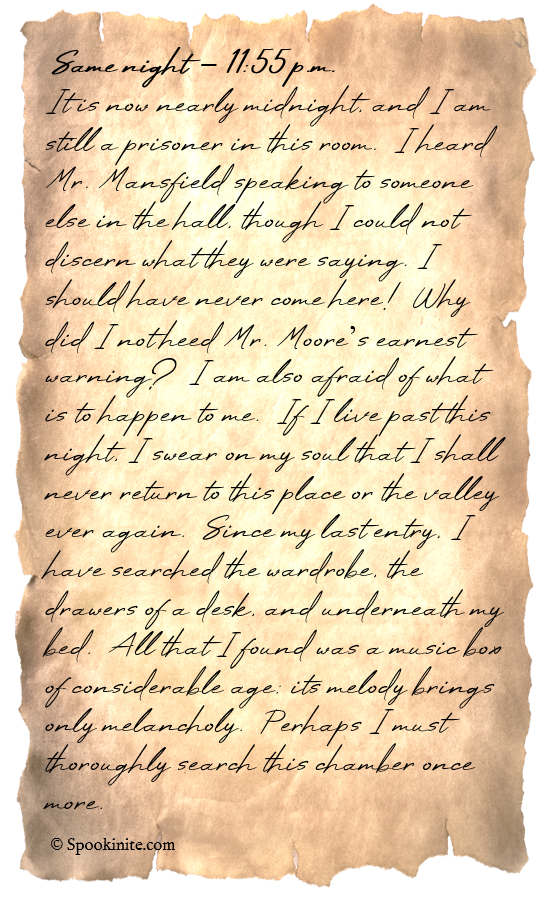 Same night – 11:55 p.m.
It is now nearly midnight, and I am
still a prisoner in this room. I heard
Mr. Mansfield speaking to someone
else in the hall, though I could not
discern what they were saying. I
should have never come here! Why
did I not heed Mr. Moore's earnest
warning? I am also afraid of what
is to happen to me. If I live past this
night, I swear on my soul that I shall
never return to this place or the valley
ever again. Since my last entry, I
have searched the wardrobe, the
drawers of a desk, and underneath my
bed. All that I found was a music box
of considerable age; its melody brings
only melancholy. Perhaps I must
thoroughly search this chamber once
more.
© Spookinite.com